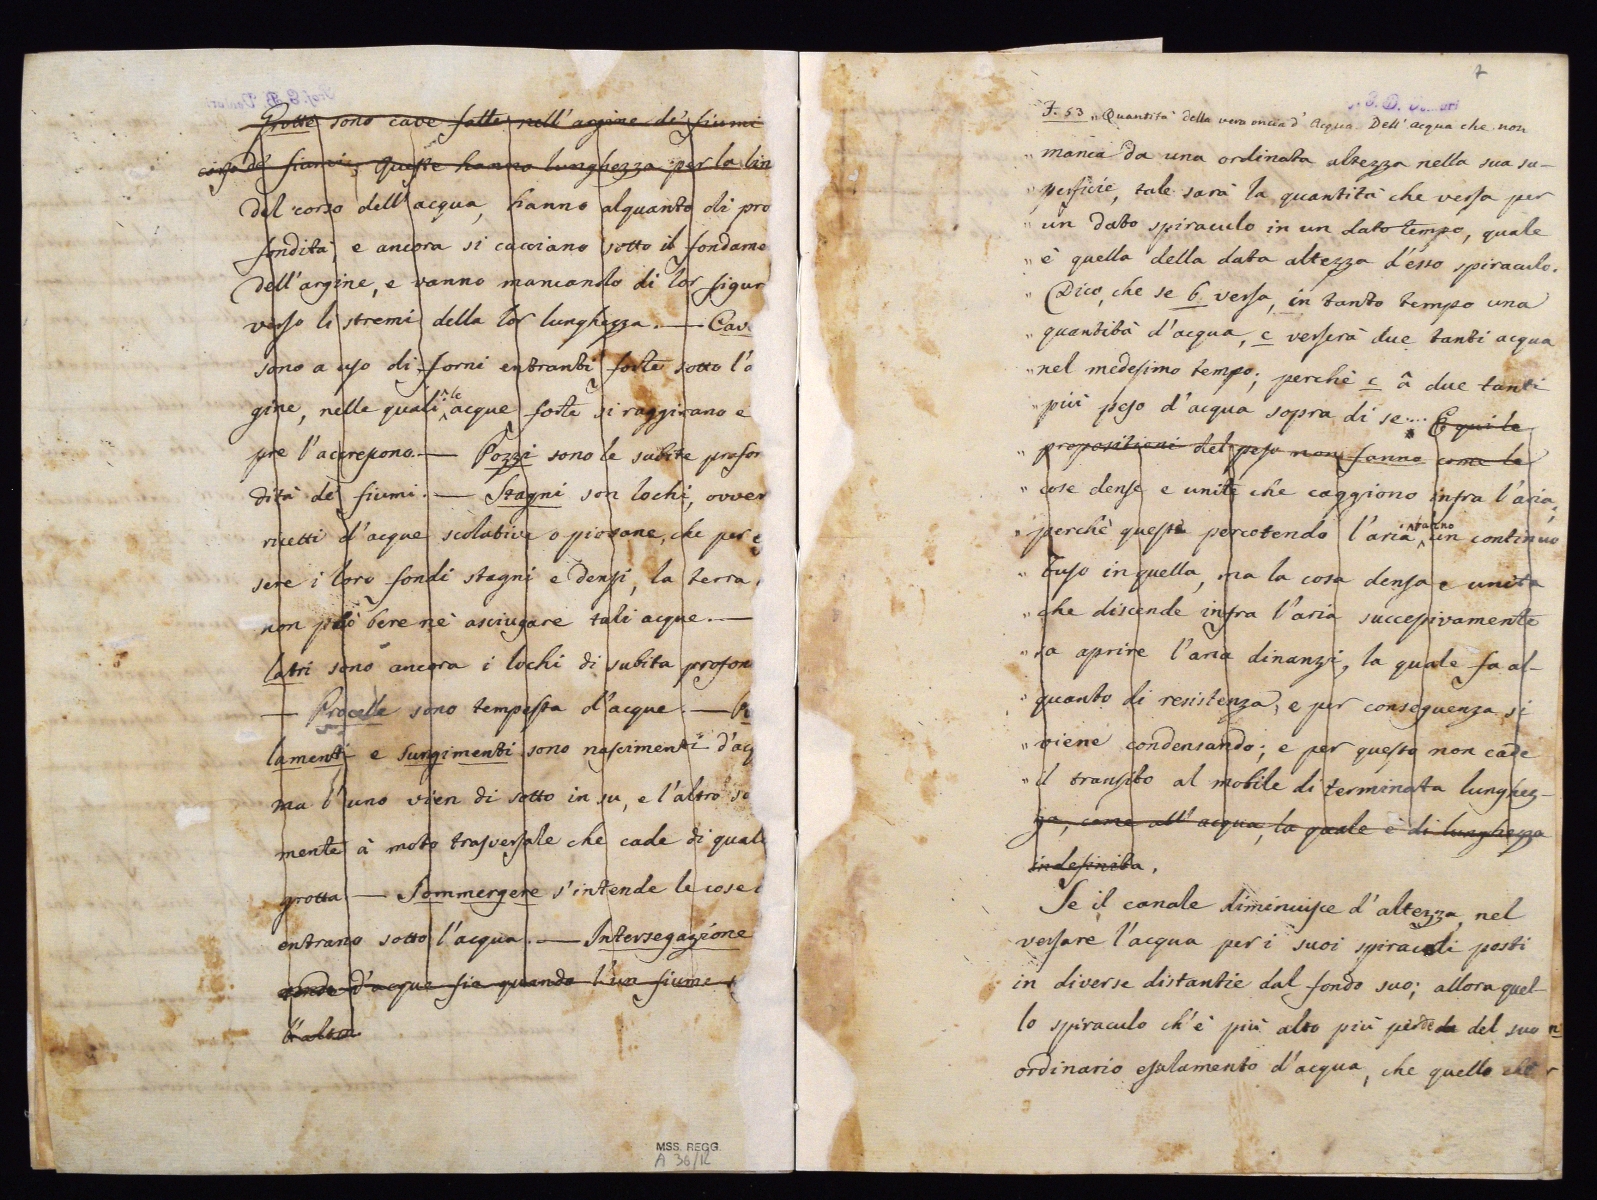 Grotte sono cave fatte nell'argine de' fiumi
corso de' fiumi; Queste hanno lunghezza per la lin
del corso dell'acqua, hanno alquanto di pro
fondità, e ancora si cacciano sotto il fondame
dell'argine, e vanno mancando di lor figur
verso li stremi della lor lunghezza. — Cav
sono a uso di forni entranti forte sotto l'a
gine, nelle quali le acque forte si raggirano e
pre l'accrescono. — Pozzi sono le subite profon
dità de' fiumi. — Stagni son lochi, ovver
ricetti d'acque scolative o piovane, che per e
sere i loro fondi stagni e densi, la terra
non può bere nè asciugare tali acque. —
latri sono ancora i lochi di subita profon
— Procelle sono tempesta d'acque. — Po
lamenti e Surgimenti sono nascimenti d'acq
ma l'uno vien di sotto in su, e l'altro so
mente à moto trasversale che cade di qual
grotta — Sommergere s'intende le cose
entrano sotto l'acqua. — Intersegazione
d'acque fia quando l'un fiume
l'altro
MSS. REGG.
A 36/12
7
F. 53 „ Quantità della vera oncia d'Acqua. Dell'acqua che non
„ manca da una ordinata altezza nella sua su-
„ perficie, tale sarà la quantità che versa per
„ un dato spiraculo in un dato tempo, quale
„ è quella della data altezza d'esso spiraculo.
„ Dico, che se b versa, in tanto tempo una
„ quantità d'acqua, c verserà due tanti acqua
„ nel medesimo tempo; perchè c â due tanti
„ più peso d'acqua sopra di se.... E qui le
„ propositioni del peso non fanno come le
„ cose dense e unite che caggiono infra l'aria,
„ perchè queste percotendo l'aria vanno un continuo
„ Tuso in quella, ma la cosa densa e unita
„ che discende infra l'aria successivamente
„ va aprire l'aria dinanzi, la quale fa al-
„ quanto di resistenza, e per conseguenza si
„ viene condensando; e per questo non cade
„ il transito al mobile di terminata lunghez-
za, come all'acqua, la quale è di lunghezza
indefinita.
Se il canale diminuisce d'altezza nel
versare l'acqua per i suoi spiracoli posti
in diverse distantie dal fondo suo; allora quel-
lo spiraculo ch'è più alto più perde del suo
ordinario esalamento d'acqua, che quello che